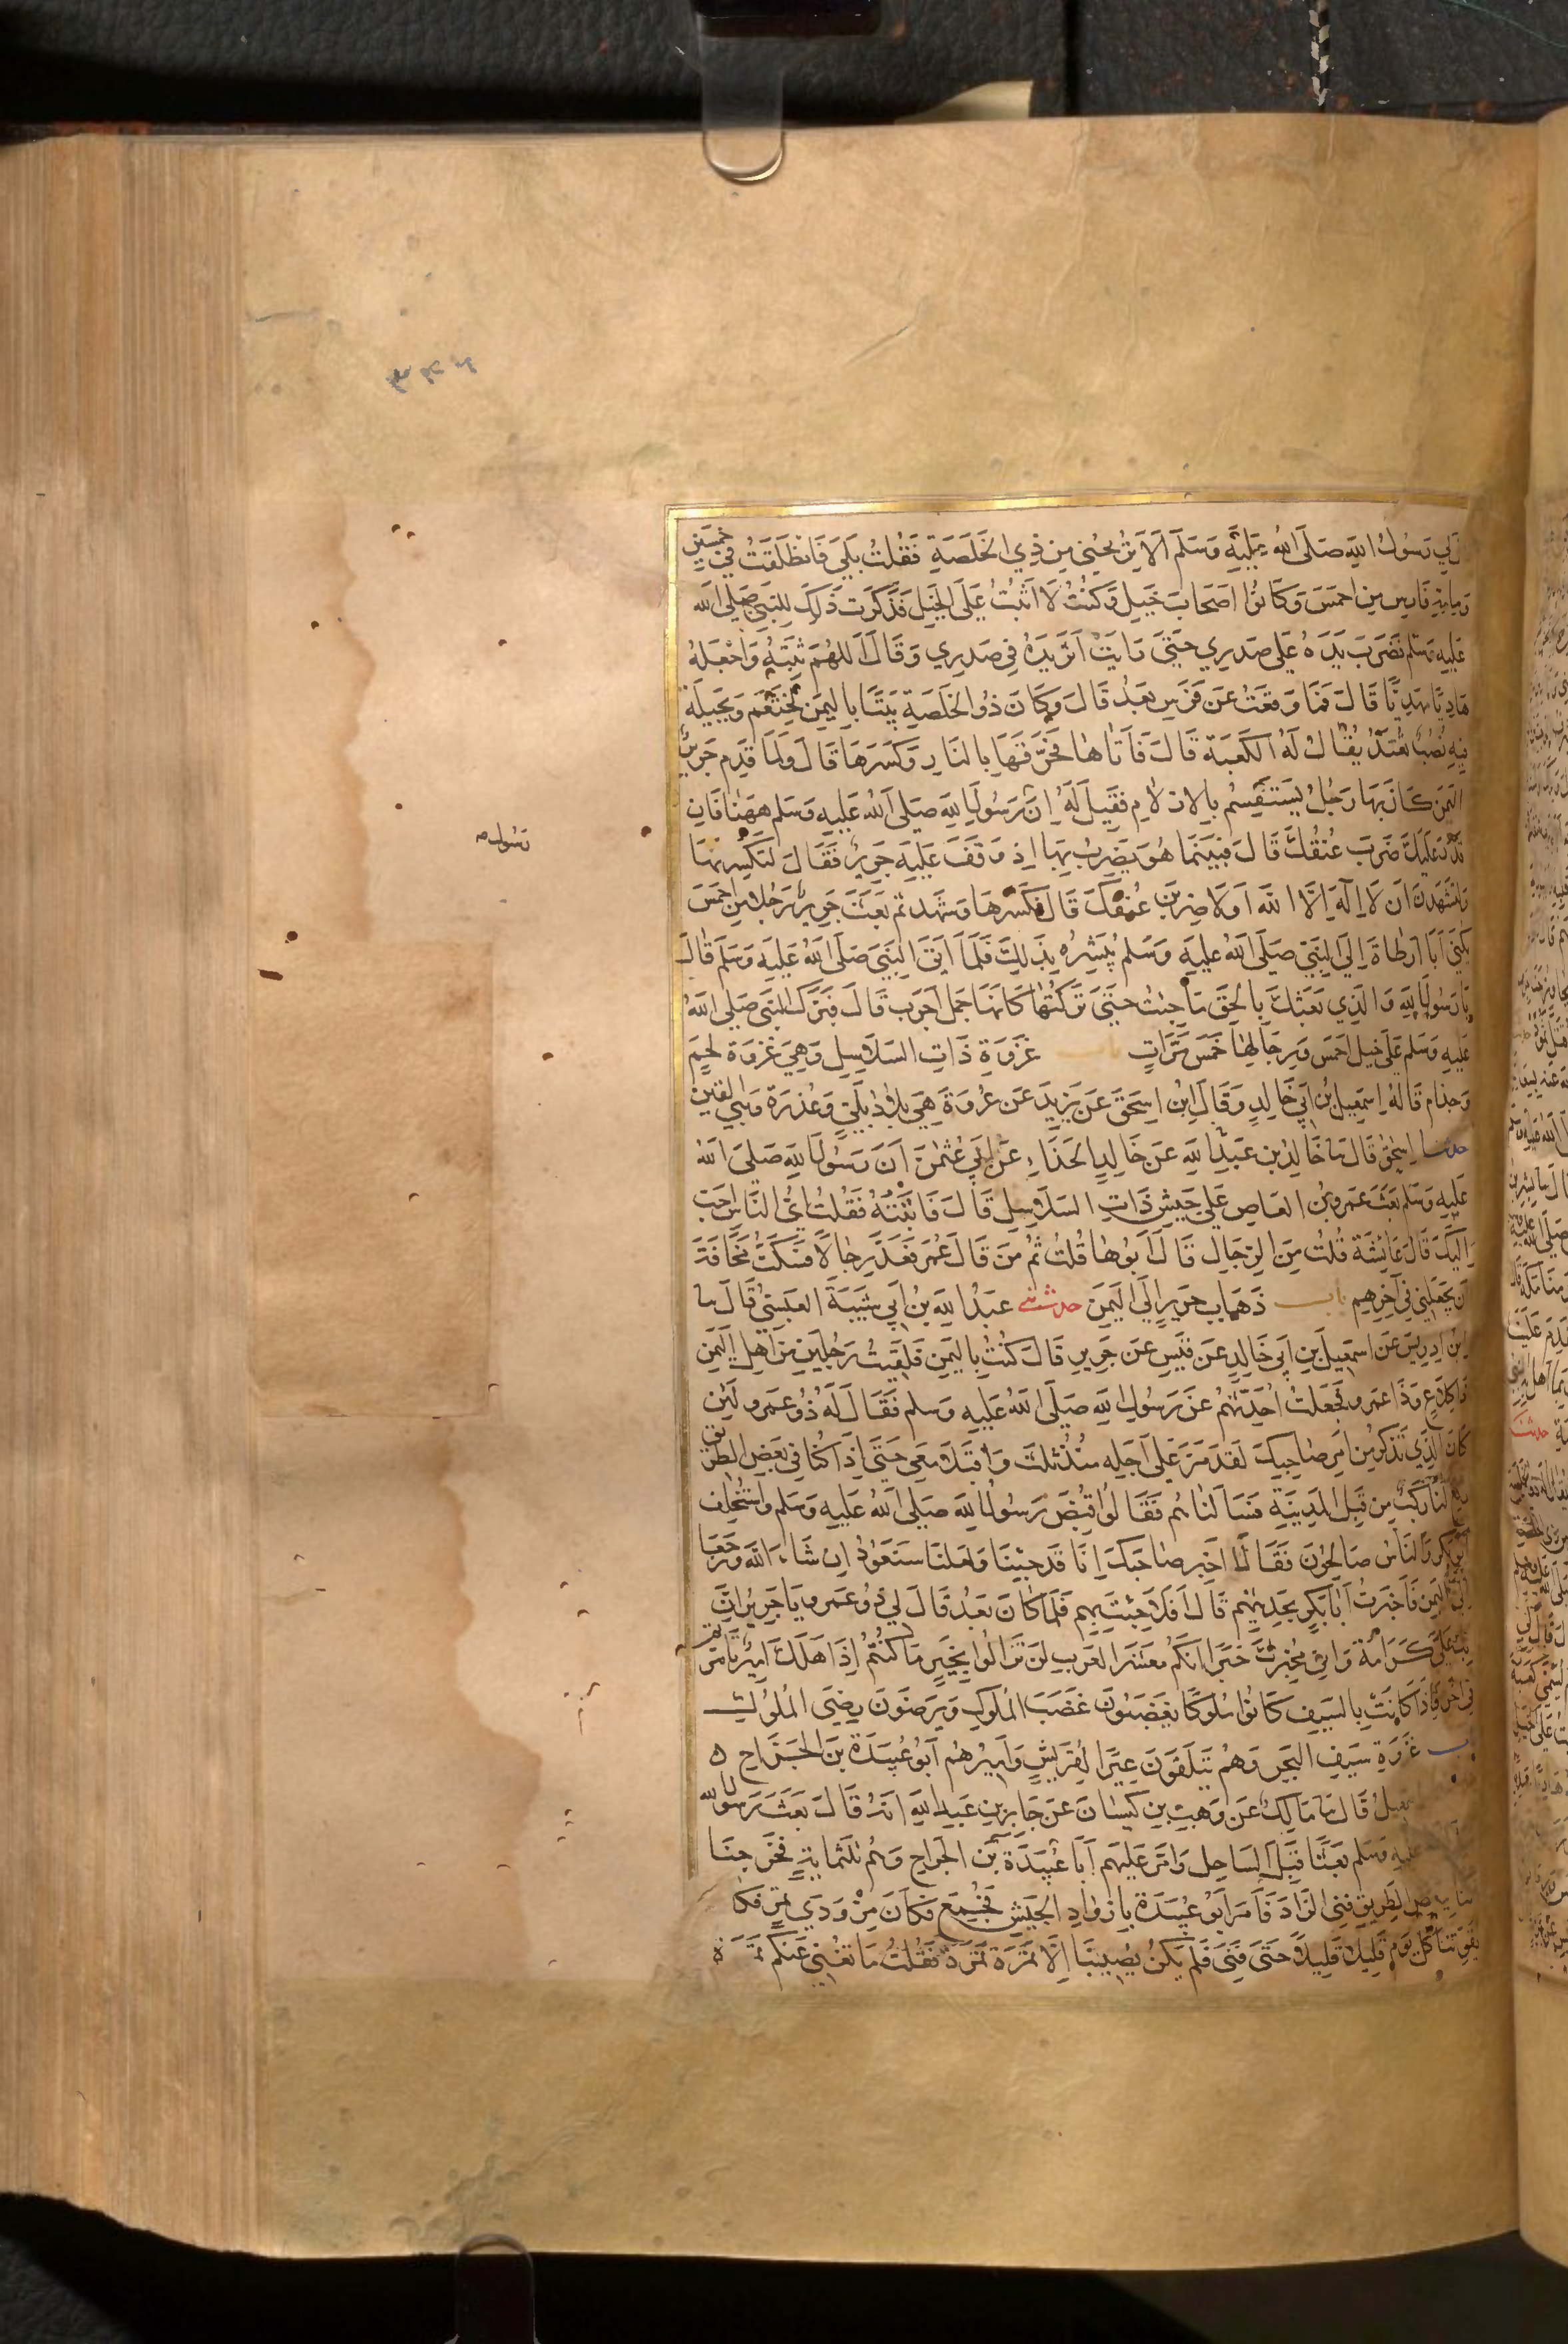 لي رسول الله صلى الله عليه وسلم ألا تريحني من ذي الخلصة فقلت بلى فانطلقت في خمسين
ومائة فارس من احمس وكانوا اصحاب خيل وكنت لا اثبت على الخيل فذكرت ذلك للنبي صلى الله
عليه وسلم فضرب يده على صدري حتى رايت اثر يده في صدري وقال اللهم ثبته واجعله
هاديا مهديا قال فما وقعت عن فرس بعد قال وكان ذو الخلصة بيتا باليمن لخثعم وبجيلة
فيه نصب تعبد يقال له الكعبة قال فأتاها فحرقها بالنار وكسرها قال ولما قدم جرير
اليمن كان بها رجل يستقسم بالازلام فقيل له إن رسول الله صلى الله عليه وسلم ههنا فان
قدر عليك ضرب عنقك قال فبينما هو يضرب بها اذ وقف عليه جرير فقال لتكسرنها
ولتشهدن ان لا إله إلا الله أو لاضربن عنقك قال فكسرها وشهد ثم بعث جرير رجلا من احمس
يكنى أبا ارطاة إلى النبي صلى الله عليه وسلم يبشره بذلك فلما اتى النبي صلى الله عليه وسلم قال
يا رسول الله والذي بعثك بالحق ما جئت حتى تركتها كانها جمل اجرب قال فبرك النبي صلى الله
عليه وسلم على خيل احمس ورجالها خمس مرات باب غزوة ذات السلاسل وهي غزوة لخم
وجذام قاله إسمعيل بن ابي خالد وقال ابن اسحق عن يزيد عن عروة هي بلاد بلي وعذرة وبني القين
حدثنا إسحق قال نا خالد بن عبد الله عن خالد الحذاء عن ابي عثمن أن رسول الله صلى الله
عليه وسلم بعث عمرو بن العاص على جيش ذات السلاسل قال فأتيته فقلت أي الناس احب
إليك قال عائشة قلت من الرجال قال أبوها قلت ثم من قال عمر فعد رجالا فسكت مخافة
أن يجعلني في آخرهم باب ذهاب جرير إلى اليمن حدثني عبد الله بن ابي شيبة العبسي قال نا
ابن ادريس عن اسمعيل بن ابي خالد عن قيس عن جرير قال كنت باليمن فلقيت رجلين من أهل اليمن
ذا كلاع وذا عمرو فجعلت أحدثهم عن رسول الله صلى الله عليه وسلم فقال له ذو عمرو لئن
كان الذي تذكر من أمر صاحبك لقد مر على أجله منذ ثلث واقبلا معي حتى إذا كنا في بعض الطريق
رفع لنا ركب من قبل المدينة فسألناهم فقالوا قبض رسول الله صلى الله عليه وسلم واستخلف
أبو بكر والناس صالحون فقالا أخبر صاحبك إنا قد جئنا ولعلنا سنعود إن شاء الله ورجعا
إلى اليمن فأخبرت أبا بكر بحديثهم قال أفلا جئت بهم فلما كان بعد قال لي ذو عمرو يا جرير إن
بك علي كرامة واني مخبرك خبرا إنكم معشر العرب لن تزالوا بخير ما كنتم إذا هلك أمير تأمرتم
في آخر فإذا كانت بالسيف كانوا ملوكا يغضبون غضب الملوك ويرضون رضى الملوك
باب غزوة سيف البحر وهم يتلقون عيرا لقريش وأميرهم أبو عبيدة بن الجراح ه
قال نا مالك عن وهب بن كيسان عن جابر بن عبد الله انه قال بعث رسول الله
عليه وسلم بعثا قبل الساحل وامر عليهم أبا عبيدة بن الجراح وهم ثلثماية فخرجنا
الطريق فني الزاد فأمر أبو عبيدة بأزواد الجيش فجمع فكان مزودي تمر فكان
يقوتنا كل يوم قليلا قليلا حتى فني فلم يكن يصيبنا إلا تمرة تمرة فقلت ما تغني عنكم تمرة
رسول